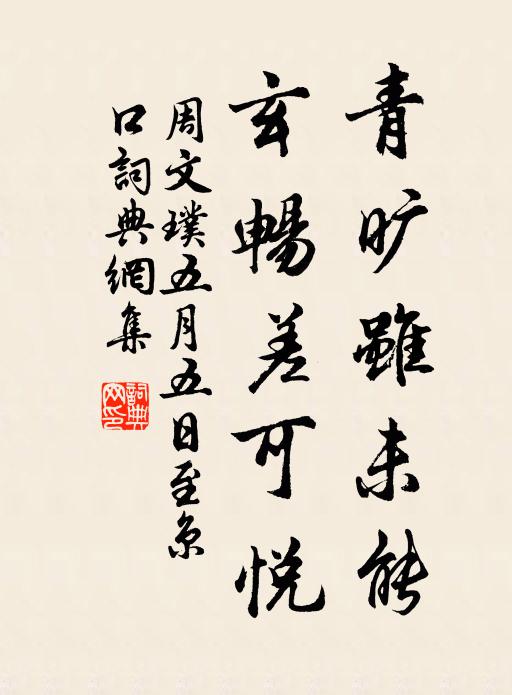 青旷雖未能
玄暢差可悦
周文璞五月五日至京
口詞典網集
詞典
网印